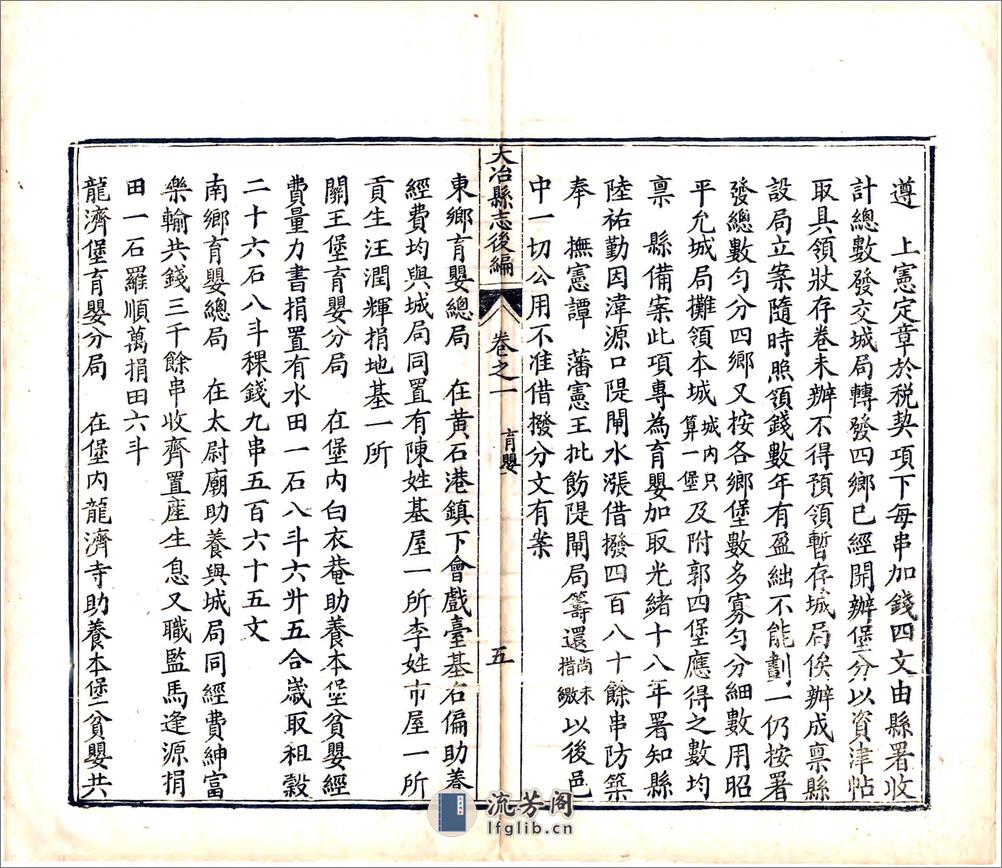 遵　上憲定章於稅契項下每串加錢四文由縣署收
計總數發交城局轉發四鄉已經開辦堡分以資津帖
取具領狀存卷未辦不得預領暫存城局俟辦成稟縣
設局立案隨時照領錢數年有盈絀不能劃一仍按署
發總數勻分四鄉又按各鄉堡數多寡勻分細數用昭
平允城局攤領本城城內只算一堡及附郭四堡應得之數均
稟　縣備案此項專為育嬰加取光緒十八年署知縣
陸祐勤因湋源口隄閘水漲借撥四百八十餘串防築
奉　撫憲譚　藩憲王批飭隄閘局籌還尚未措繳以後邑
中一切公用不准借撥分文有案
大冶縣志後編　卷之一　育嬰　五
東鄉育嬰總局　在黃石港鎮下會戲臺基右偏助養
經費均與城局同置有陳姓基屋一所李姓市屋一所
貢生汪潤輝捐地基一所
關王堡育嬰分局　在堡內白衣菴助養本堡貧嬰經
費量力書捐置有水田一石八斗六升五合歲取租穀
二十六石八斗稞錢九串五百六十五文
南鄉育嬰總局　在太尉廟助養與城局同經費紳富
樂輸共錢三千餘串收齊置產生息又職監馬逢源捐
田一石羅順萬捐田六斗
龍濟堡育嬰分局　在堡內龍濟寺助養本堡貧嬰共
流芳阁
lfglib.cn